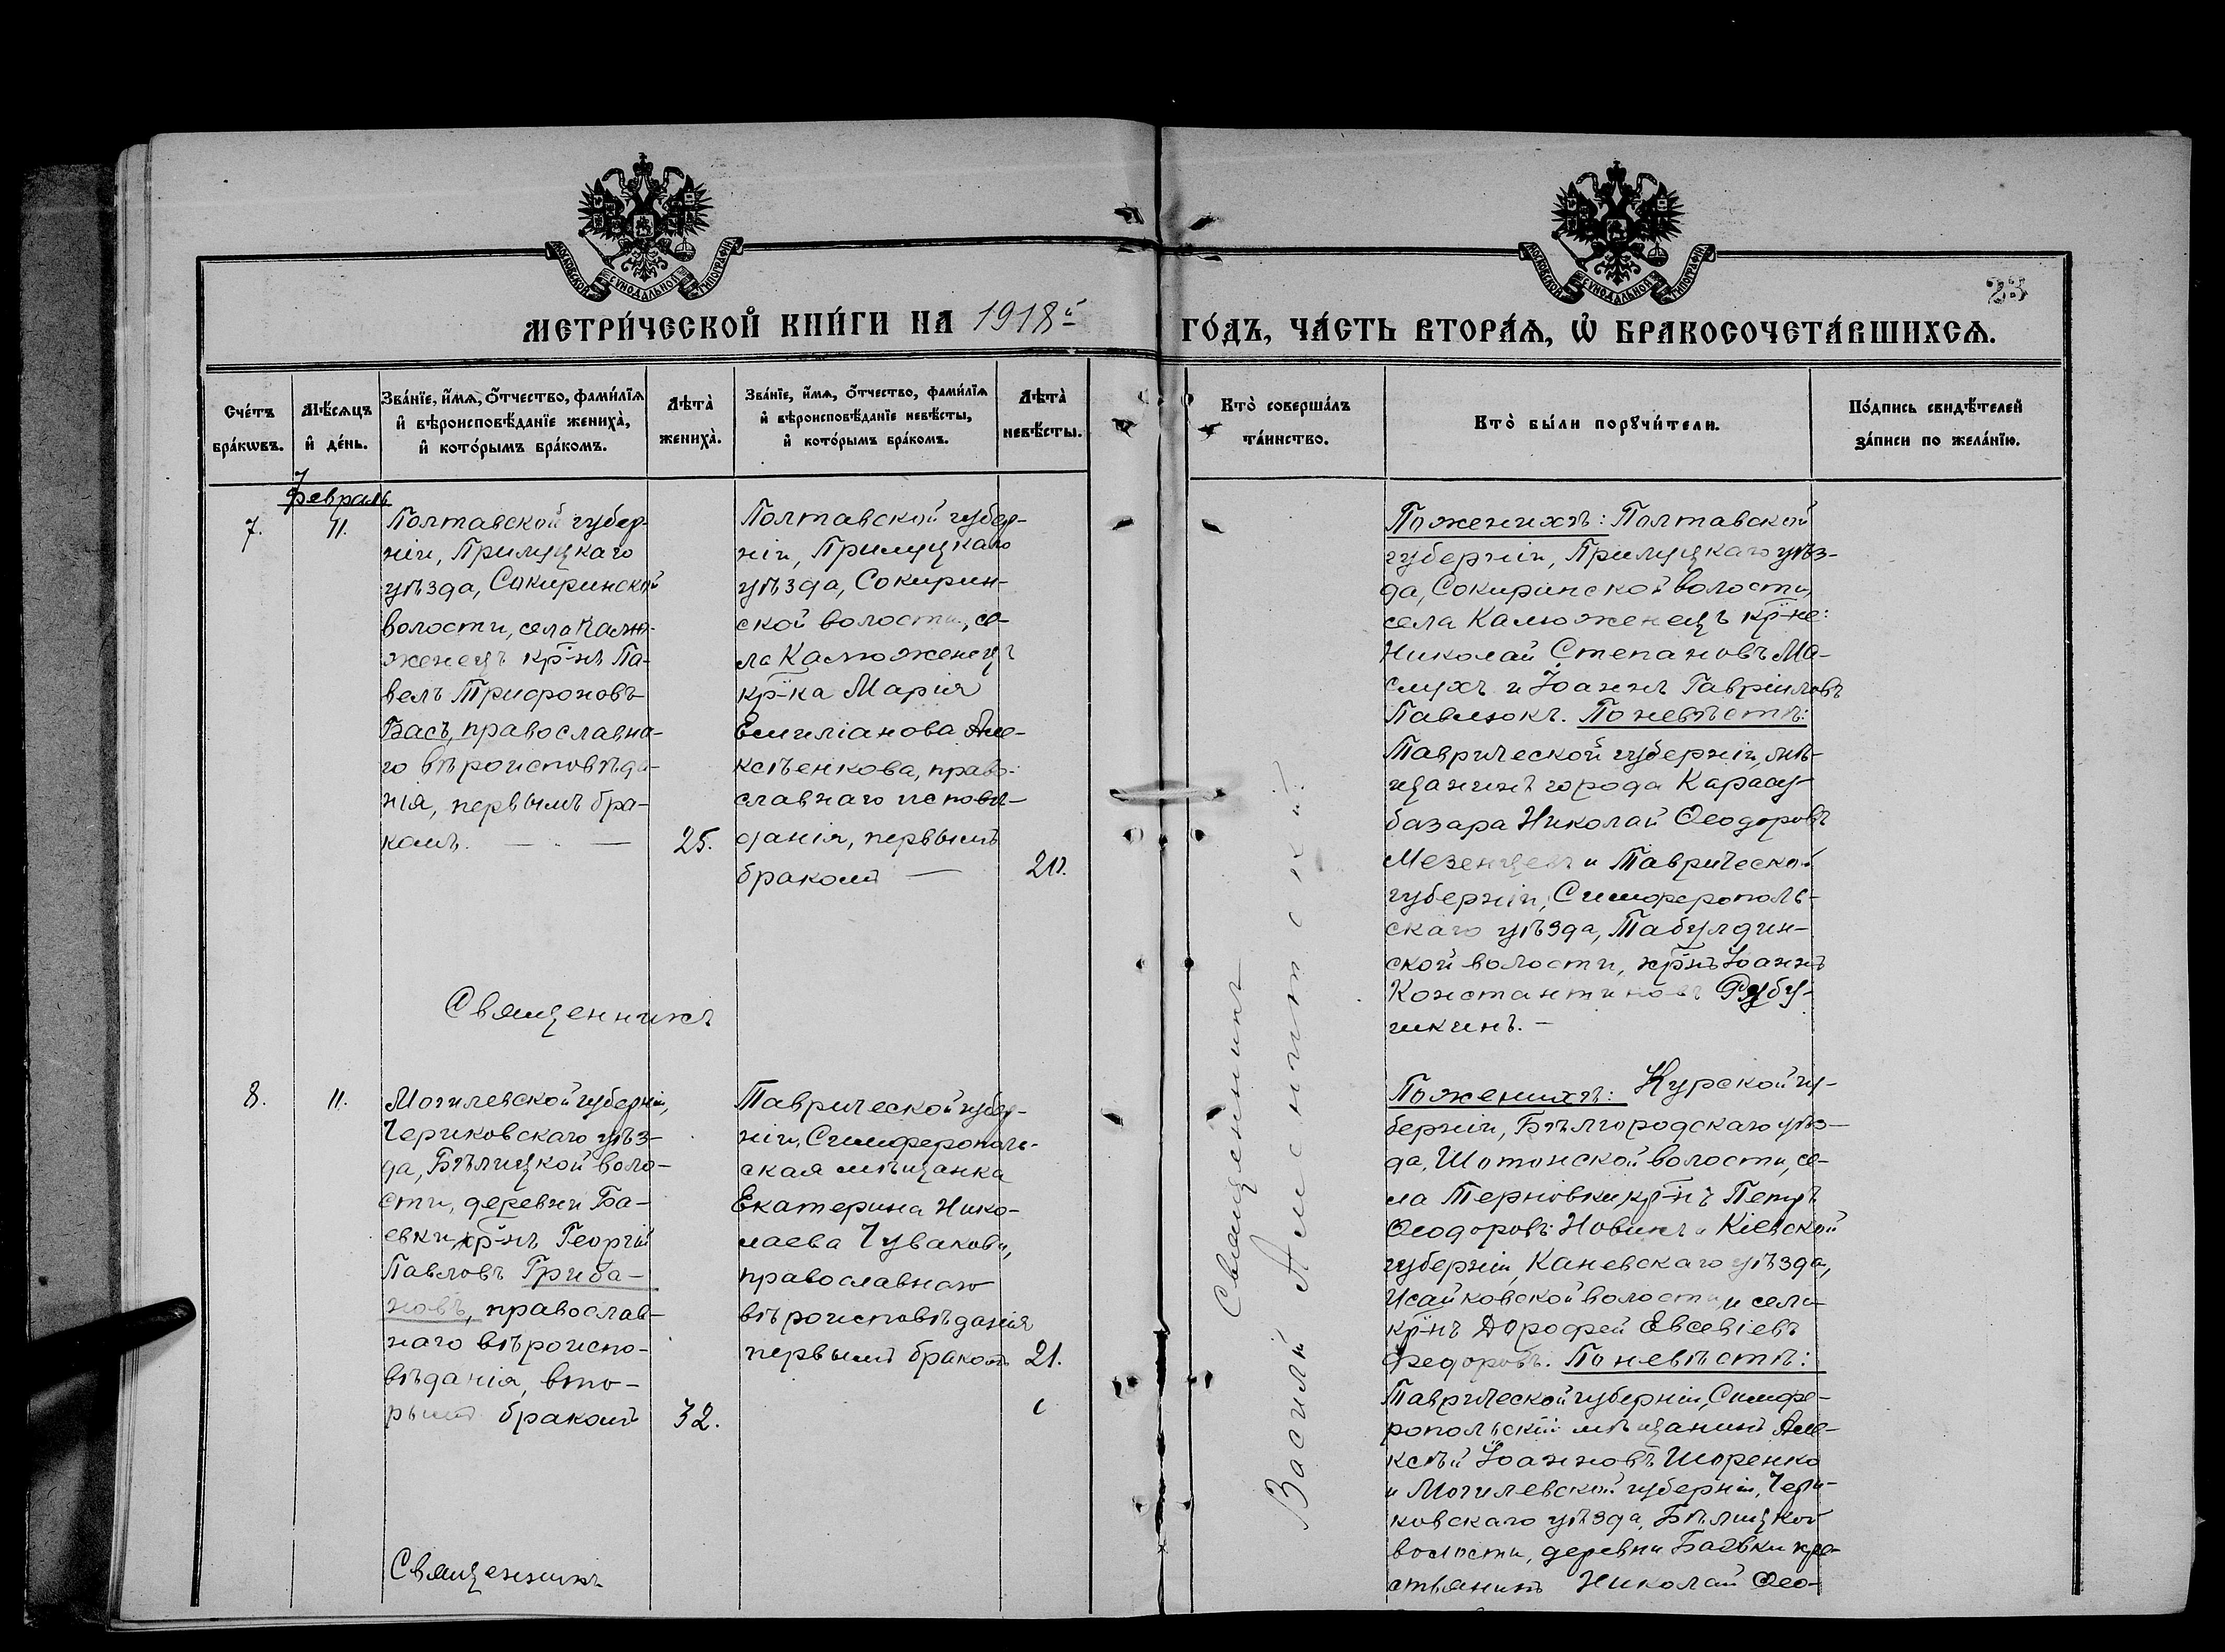 МОСКОВСКОЙ СѴНОДАЛЬНОЙ ТИПОГРАФІИ
МОСКОВСКОЙ СѴНОДАЛЬНОЙ ТИПОГРАФІИ
23
МЕТРИ́ЧЕСКОЙ КНИ́ГИ НА 1918й
ГО́ДЪ, ЧА́СТЬ ВТОРА́Ѧ, Ѡ҆ БРАКОСОЧЕТА́ВШИХСѦ.
Сче́тъ бра́кѡвъ.
Мѣ́сѧцъ и҆ де́нь.
Зва́нїе, и҆́мѧ, ѻ҆́тчество, фами́лїѧ и҆ вѣроисповѣ́данїе жениха̀, и҆ кото́рымъ бра́комъ.
Лѣта̀ жениха̀.
Зва́нїе, и҆́мѧ, ѻ҆́тчество, фами́лїѧ и҆ вѣроисповѣ́данїе невѣ́сты, и҆ кото́рымъ бра́комъ.
Лѣта̀ невѣ́сты.
Кто̀ соверша́лъ та́инство.
Кто̀ бы́ли порꙋчи́тели.
По́дпись свидѣ́телей за́писи по жела́нїю.
Февраль
7.
11.
Полтавской губер-
ніи, Прилуцкаго
уѣзда, Сокиринской
волости, села Калю-
женецъ кр-нъ Па-
велъ Трифоновъ
Басъ, православна-
го вѣроисповѣда-
нія, первымъ бра-
комъ. — . —
25.
Полтавской губер-
ніи, Прилуцкаго
уѣзда, Сокирин-
ской волости, се-
ла Калюженецъ
кр-ка Марія
Емиліанова Але-
ксѣенкова, право-
славнаго исповѣ-
данія, первымъ
бракомъ —
Священникъ
По женихѣ: Полтавской
губерніи, Прилуцкаго уѣз-
да, Сокиринской волости,
села Калюженецъ кр-не:
Николай Степановъ Ма-
слухъ и Іоаннъ Гавріиловъ
Павлюкъ. По невѣстѣ:
Таврической губерніи, мѣ-
щанинъ города Карасу-
базара Николай Ѳеодоровъ
Мезенцевъ и Таврической
губерніи, Симферополь-
скаго уѣзда, Табулдин-
ской волости, кр-нъ Іоаннъ
Константиновъ Рубу-
шкинъ. —
8.
11.
Могилевской губерніи,
Чериковскаго уѣз-
да, Бѣлицкой воло-
сти, деревни Ба-
евки, кр-нъ Георгій
Павловъ Гриба-
новъ, православ-
наго вѣроиспо-
вѣданія, вто-
рымъ бракомъ
32.
Таврической губер-
ніи, Симферополь-
ская мѣщанка
Екатерина Нико-
лаева Чувакова,
православнаго
вѣроисповѣданія
первымъ бракомъ
21.
Священникъ
Священникъ
Василій
По женихѣ: Курской гу-
берніи, Бѣлгородскаго уѣз-
да, волости, се-
ла Терновки, кр-нъ Петръ
Ѳеодоровъ Новикъ и Кіевской
губерніи, Каневскаго уѣзда,
волости, и села
кр-нъ Дорофей Евсевіевъ
Федоровъ. По невѣстѣ:
Таврической губерніи, Симфе-
ропольскій мѣщанинъ Але-
ксѣй Іоанновъ Шоренко
и Могилевской губерніи, Чери-
ковскаго уѣзда, Бѣлицкой
волости, деревни Баевки кре-
стьянинъ Николай Ѳео-